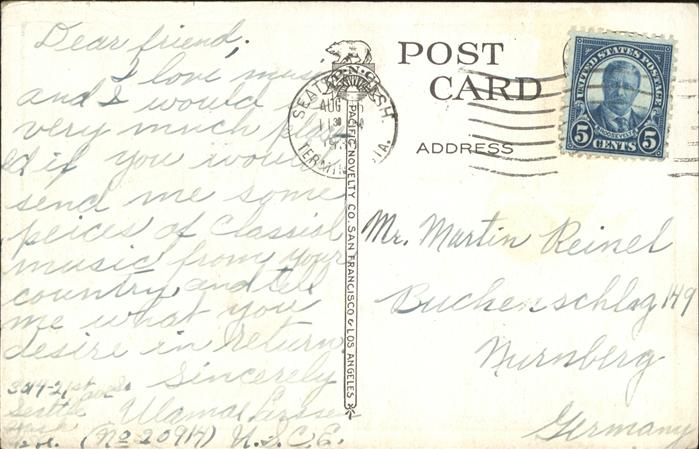 Dear friend,
I love music
and I would
very much pleas
ed if you would
send me some
peices of Classicl
music from your
country and tell
me what you
desire in return.
Sincerely
3014-21st ave So.
Seattle
Wash
(No 20914) U.S.C.E.
P.N.C.
PACIFIC NOVELTY CO. SAN FRANCISCO & LOS ANGELES
SEATTLE WASH.
AUG
11 30
TERMINAL STA.
POST
CARD
ADDRESS
UNITED STATES POSTAGE
ROOSEVELT
5 CENTS 5
Mr. Martin Reinel
Buchenschlag 149
Nurnberg
Germany